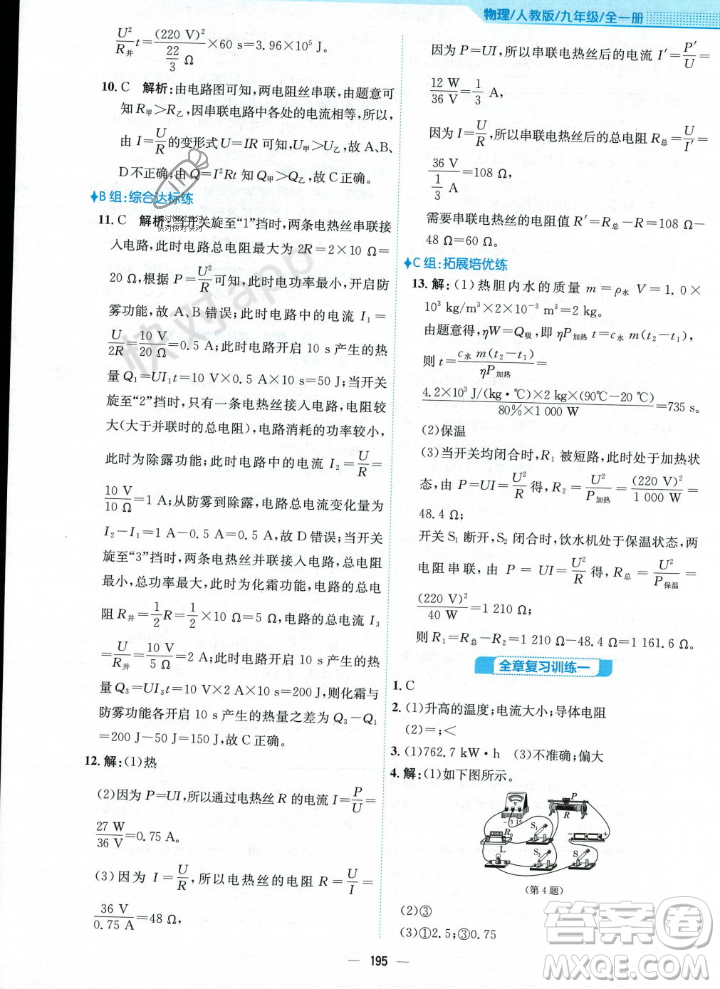 物理/人教版/九年级/全一册
U²/R并 t=(220 V)²/(22/3 Ω)×60 s=3.96×10⁵ J
10. C 解析:由电路图可知,两电阻丝串联,由题意可
知 R甲>R乙,因串联电路中各处的电流相等,所以,
由 I=U/R 的变形式 U=IR 可知,U甲>U乙,故 A、B、
D不正确;由 Q=I²Rt 可知,Q甲>Q乙,故 C 正确。
B 组:综合达标练
11. C 解析:当开关旋至“1”挡时,两条电热丝串联接
入电路,此时电路总电阻最大为 2R=2×10 Ω=
20 Ω,根据 P=U²/R 可知,此时电功率最小,开启防
雾功能,故 A、B 错误;此时电路总电流 I₁=
U/2R=10 V/20 Ω=0.5 A;此时电路开启 10 s 产生的热
量 Q₁=UI₁t=10 V×0.5 A×10 s=50 J;当开关
旋至“2”挡时,只有一条电热丝接入电路,电阻较
大(大于并联时的总电阻),电路消耗的功率较大,
此时为除露功能;此时电路的电流 I₂=U/R=
10 V/10 Ω=1 A;从防雾到除露,电路总电流变化量为
I₂-I₁=1 A-0.5 A=0.5 A,故 D 错误;当开关
旋至“3”挡时,两条电热丝并联接入电路,电路总电
阻最小,总功率最大,此时为化霜功能,电路的总电
阻 R并=1/2R=1/2×10 Ω=5 Ω,电路的总电流 I₃
=U/R并=10 V/5 Ω=2 A,此时电路开启 10 s 产生的热
量 Q₃=UI₃t=10 V×2 A×10 s=200 J,则化霜与
防雾功能各开启 10 s 产生的热量之差为 Q₃-Q₁
=200 J-50 J=150 J,故 C 正确。
12. 解:(1)热
(2)因为 P=UI,所以通过电热丝 R 的电流 I=P/U=
27 W/36 V=0.75 A。
(3)因为 I=U/R,所以电热丝的电阻 R=U/I=
36 V/0.75 A=48 Ω,
因为 P=UI,所以串联电热丝后的电流 I′=P′/U=
12 W/36 V=1/3 A,
因为 I=U/R,所以串联电热丝后的总电阻 R总=U/I′=
36 V/(1/3 A)=108 Ω,
需要串联电热丝的电阻值 R′=R总-R=108 Ω-
48 Ω=60 Ω。
C 组:拓展培优练
13. 解:(1)热胆内水的质量 m=ρ水 V=1.0×
10³ kg/m³×2×10⁻³ m³=2 kg。
由题意得,ηW=Q吸,即 ηP加热 t=c水 m(t₂-t₁),
则 t=c水 m(t₂-t₁)/ηP加热=
4.2×10³ J/(kg·℃)×2 kg×(90℃-20℃)/80%×1 000 W=735 s。
(2)保温
(3)当开关均闭合时,R₁ 被短路,此时处于加热状
态,由 P=UI=U²/R 得,R₂=U²/P加热=(220 V)²/1 000 W=
48.4 Ω;
开关 S₁ 断开,S₂ 闭合时,饮水机处于保温状态,两
电阻串联,由 P=UI=U²/R 得,R总=U²/P保温=
(220 V)²/40 W=1 210 Ω;
则 R₁=R总-R₂=1 210 Ω-48.4 Ω=1 161.6 Ω。
全章复习训练一
1. C
2. (1)升高的温度;电流大小;导体电阻
(2)=;<
3. (1)762.7 kW·h (3)不准确;偏大
4. 解:(1)如下图所示。
P
R
S₁
S
R₀
L
S₂
(第 4 题)
(2)③
(3)①2.5;③0.75
195
快对app
答案圈
MXQE.COM